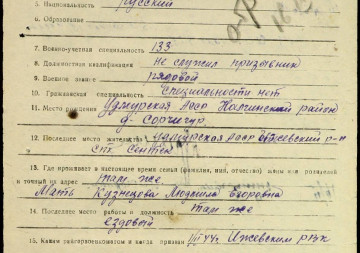 5. Национальность русский
6. Образование
7. Военно-учетная специальность 133
8. Должностная квалификация не служил призывник
9. Военное звание рядовой
10. Гражданская специальность специальности нет
11. Место рождения Удмурская АССР район
д.
12. Последнее место жительства Удмурская АССР Ижевский р-н
13. Где проживает в настоящее время семья (фамилия, имя, отчество) жены или родителей
и точный их адрес там же
Мать Кузнецова Людмила Егоровна
14. Последнее место работы и должность там же
ездовый
15. Каким райгорвоенкоматом и когда призван 44 г. Ижевским РВК